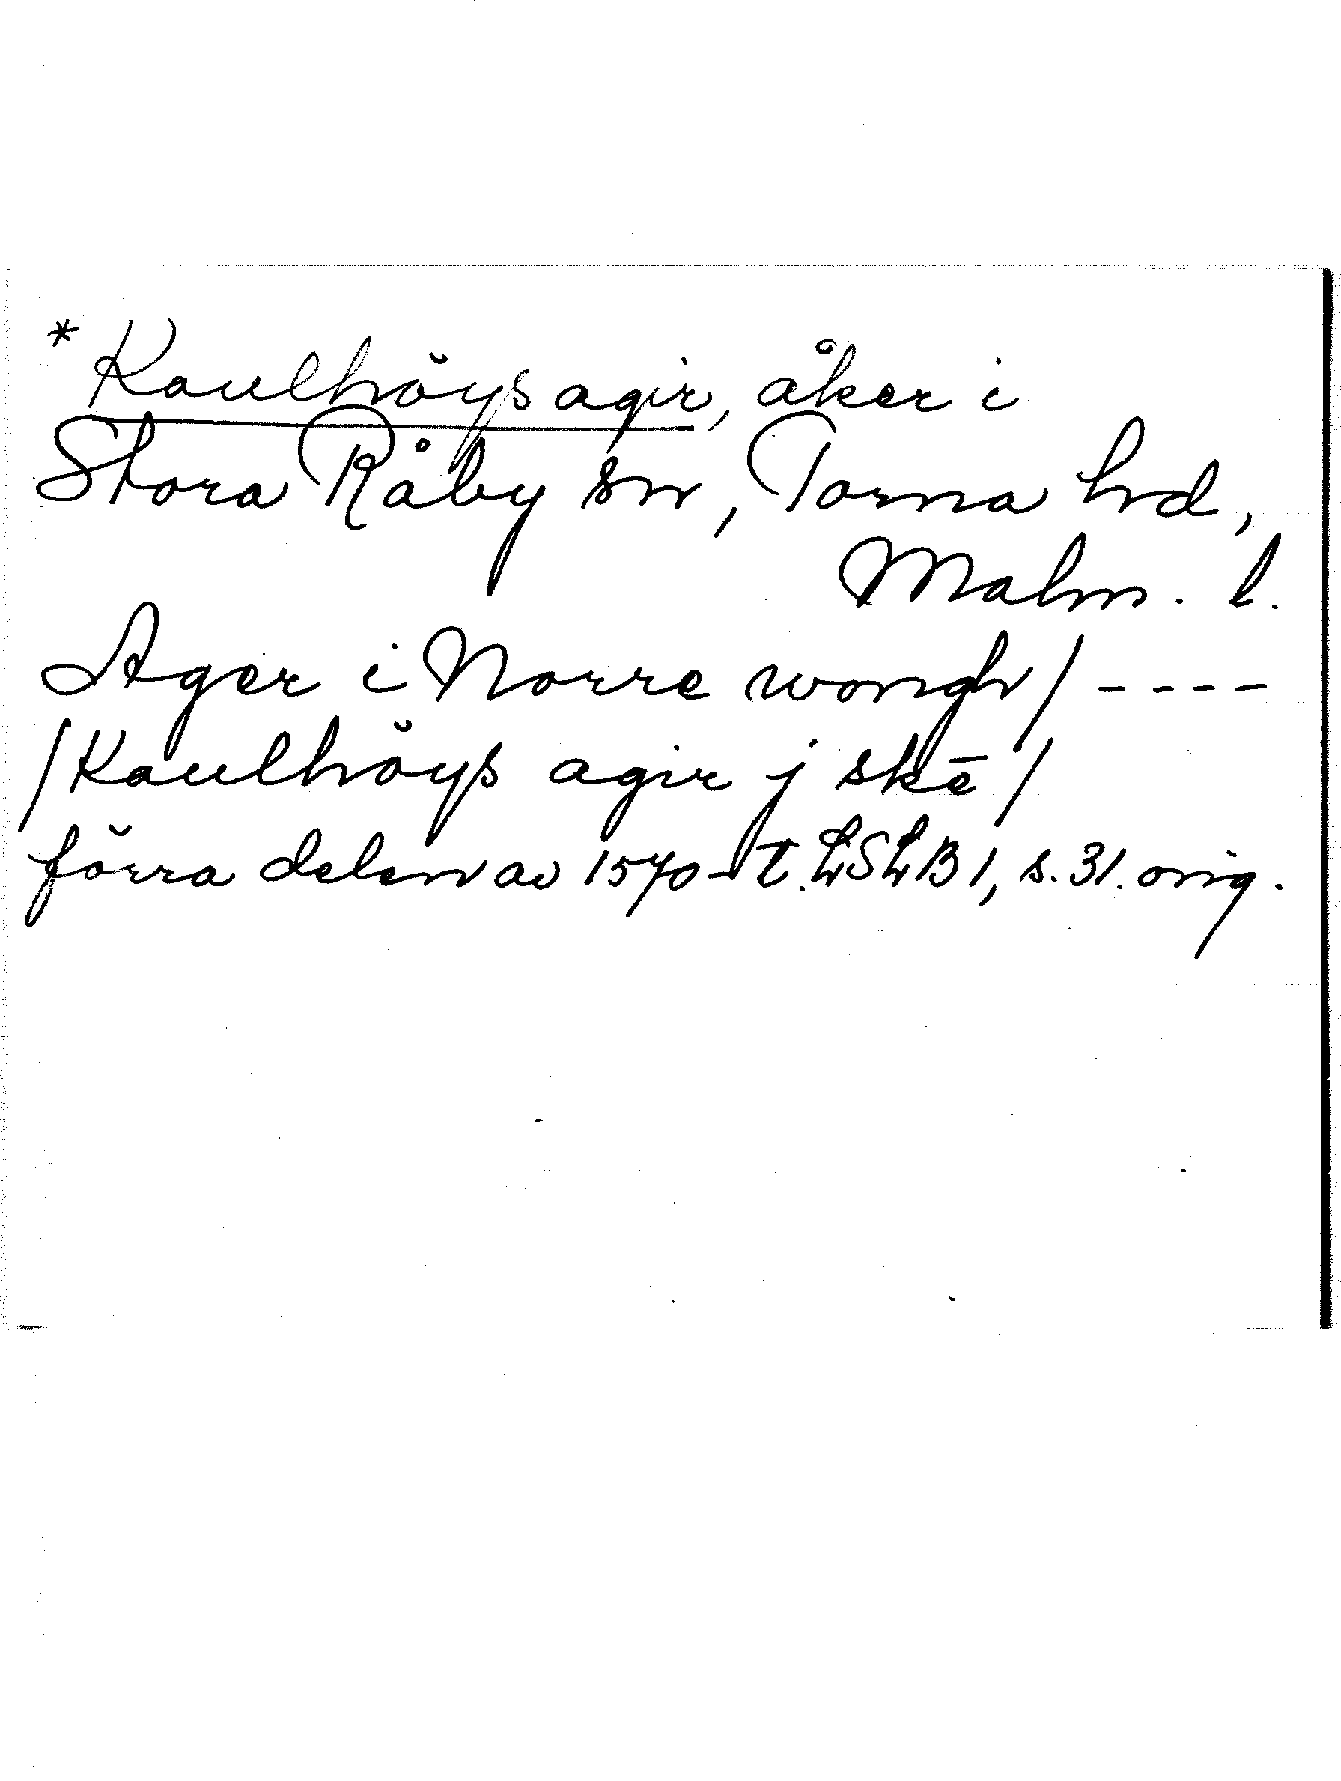 * Kaulhöys agir, åker i
Stora Råby sn, Torna hd,
Malm. l.
Ager i Norre wongh / ----
/ Kaulhöys agir j skē /
förra delen av 1570-t. LSLB 1, s. 31. orig.